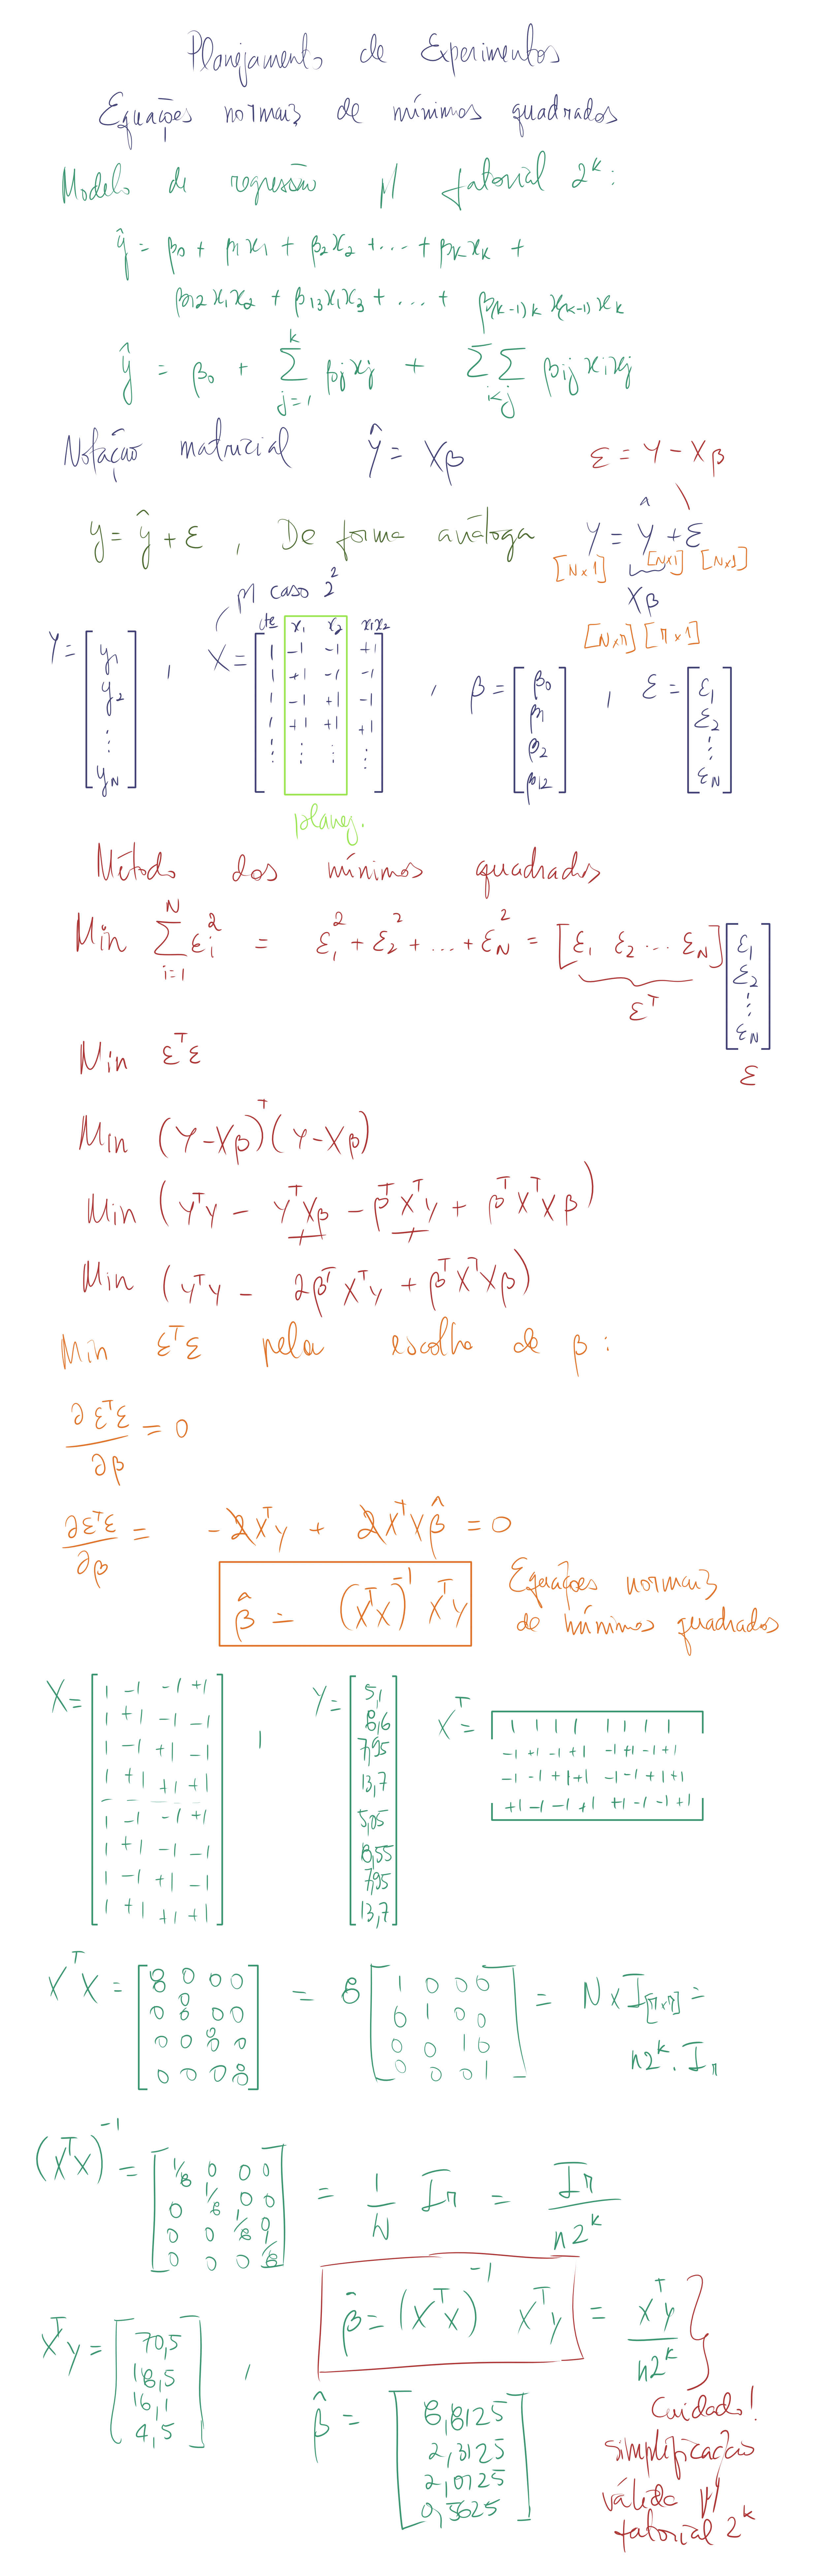 Planejamento de Experimentos
Equações normais de mínimos quadrados
Modelo de regressão p/ fatorial 2^k:
ŷ = β0 + β1x1 + β2x2 + ... + βkxk +
β12x1x2 + β13x1x3 + ... + β(k-1)k x(k-1)xk
ŷ = β0 + Σ_{j=1}^{k} βjxj + ΣΣ_{i<j} βijxixj
Notação matricial Ŷ = Xβ ε = Y - Xβ
y = ŷ + ε , De forma análoga Y = Ŷ + ε
[N×1] [N×1] [N×1]
Xβ
[N×η] [η×1]
p/ caso 2^2
cte x1 x2 x1x2
Y = [y1 y2 ⋮ yN] , X = [1 -1 -1 +1
1 +1 -1 -1
1 -1 +1 -1
1 +1 +1 +1
⋮ ⋮ ⋮ ⋮] , β = [β0 β1 β2 β12] , ε = [ε1 ε2 ⋮ εN]
planej.
Método dos mínimos quadrados
Min Σ_{i=1}^{N} εi^2 = ε1^2 + ε2^2 + ... + εN^2 = [ε1 ε2 ... εN] [ε1 ε2 ⋮ εN]
ε^T ε
Min ε^Tε
Min (Y-Xβ)^T(Y-Xβ)
Min (Y^TY - Y^TXβ - β^TX^TY + β^TX^TXβ)
Min (Y^TY - 2β^TX^TY + β^TX^TXβ)
Min ε^Tε pela escolha de β:
∂ε^Tε/∂β = 0
∂ε^Tε/∂β = -2X^Ty + 2X^TXβ̂ = 0
β̂ = (X^TX)^-1 X^Ty Equações normais
de mínimos quadrados
X = [1 -1 -1 +1
1 +1 -1 -1
1 -1 +1 -1
1 +1 +1 +1
1 -1 -1 +1
1 +1 -1 -1
1 -1 +1 -1
1 +1 +1 +1] , Y = [5,1
8,6
7,95
13,7
5,05
8,55
7,95
13,7] X^T = [1 1 1 1 1 1 1 1
-1 +1 -1 +1 -1 +1 -1 +1
-1 -1 +1 +1 -1 -1 +1 +1
+1 -1 -1 +1 +1 -1 -1 +1]
X^TX = [8 0 0 0
0 8 0 0
0 0 8 0
0 0 0 8] = 8 [1 0 0 0
0 1 0 0
0 0 1 0
0 0 0 1] = N × I[η×η] =
n2^k . Iη
(X^TX)^-1 = [1/8 0 0 0
0 1/8 0 0
0 0 1/8 0
0 0 0 1/8] = 1/N Iη = Iη/n2^k
X^Ty = [70,5
18,5
16,1
4,5] , β̂ = (X^TX)^-1 X^Ty = X^Ty/n2^k
β̂ = [8,8125
2,3125
2,0125
0,5625]
Cuidado!
simplificação
válida p/
fatorial 2^k